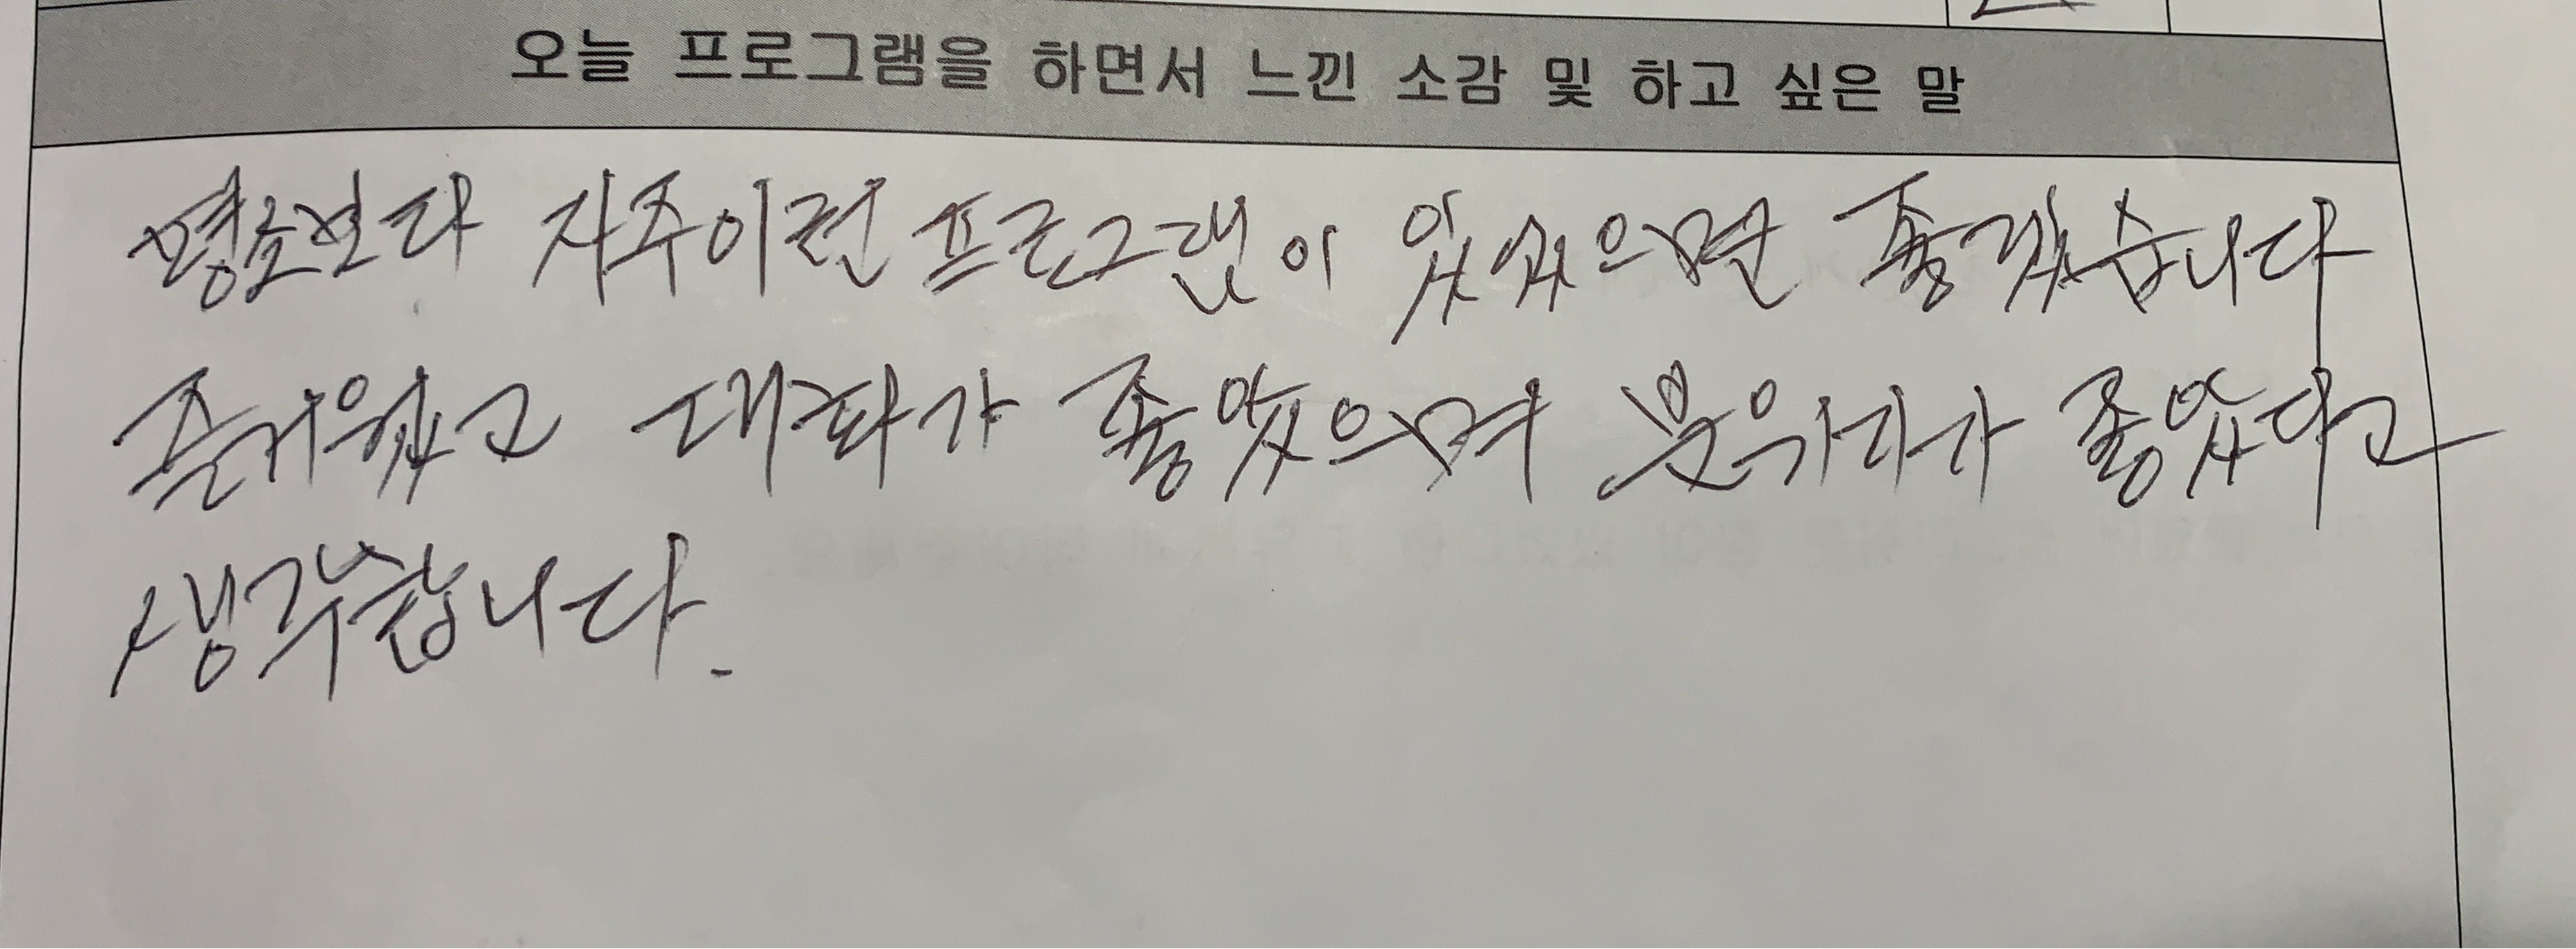 오늘 프로그램을 하면서 느낀 소감 및 하고 싶은 말
평소보다 자주 이런 프로그램이 있었으면 좋겠습니다
즐거웠고 대화가 좋았으며 분위기가 좋았다고
생각합니다.